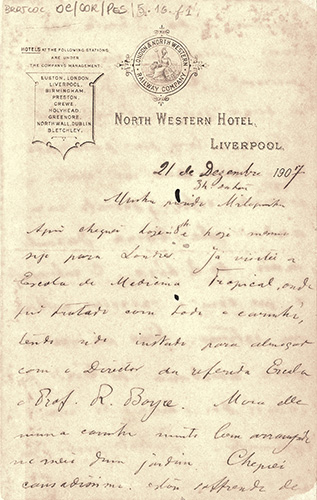 BRRJCOC OC/COR/PES/5.16.f1
HOTELS AT THE FOLLOWING STATIONS
ARE UNDER
THE COMPANYS MANAGEMENT:
EUSTON, LONDON
LIVERPOOL.
BIRMINGHAM.
PRESTON,
CREWE.
HOLYHEAD.
GREENORE.
NORTH WALL, DUBLIN
BLETCHLEY.
LONDON & NORTH WESTERN
RAILWAY COMPANY
NORTH WESTERN HOTEL,
LIVERPOOL.
21 de Dezembro 1907
Minha
Aqui cheguei e hoje mesmo
sijo para Londres. Já visitei a
Escola de Medicina Tropical, onde
fui tratado com todo o carinho,
tendo sido instado para almoçar
com o Director da referida Escola
o Prof. R. Boyce. Mora elle
numa muito bem arranjada
no meio dum jardim. Cheguei
estou soffrendo de